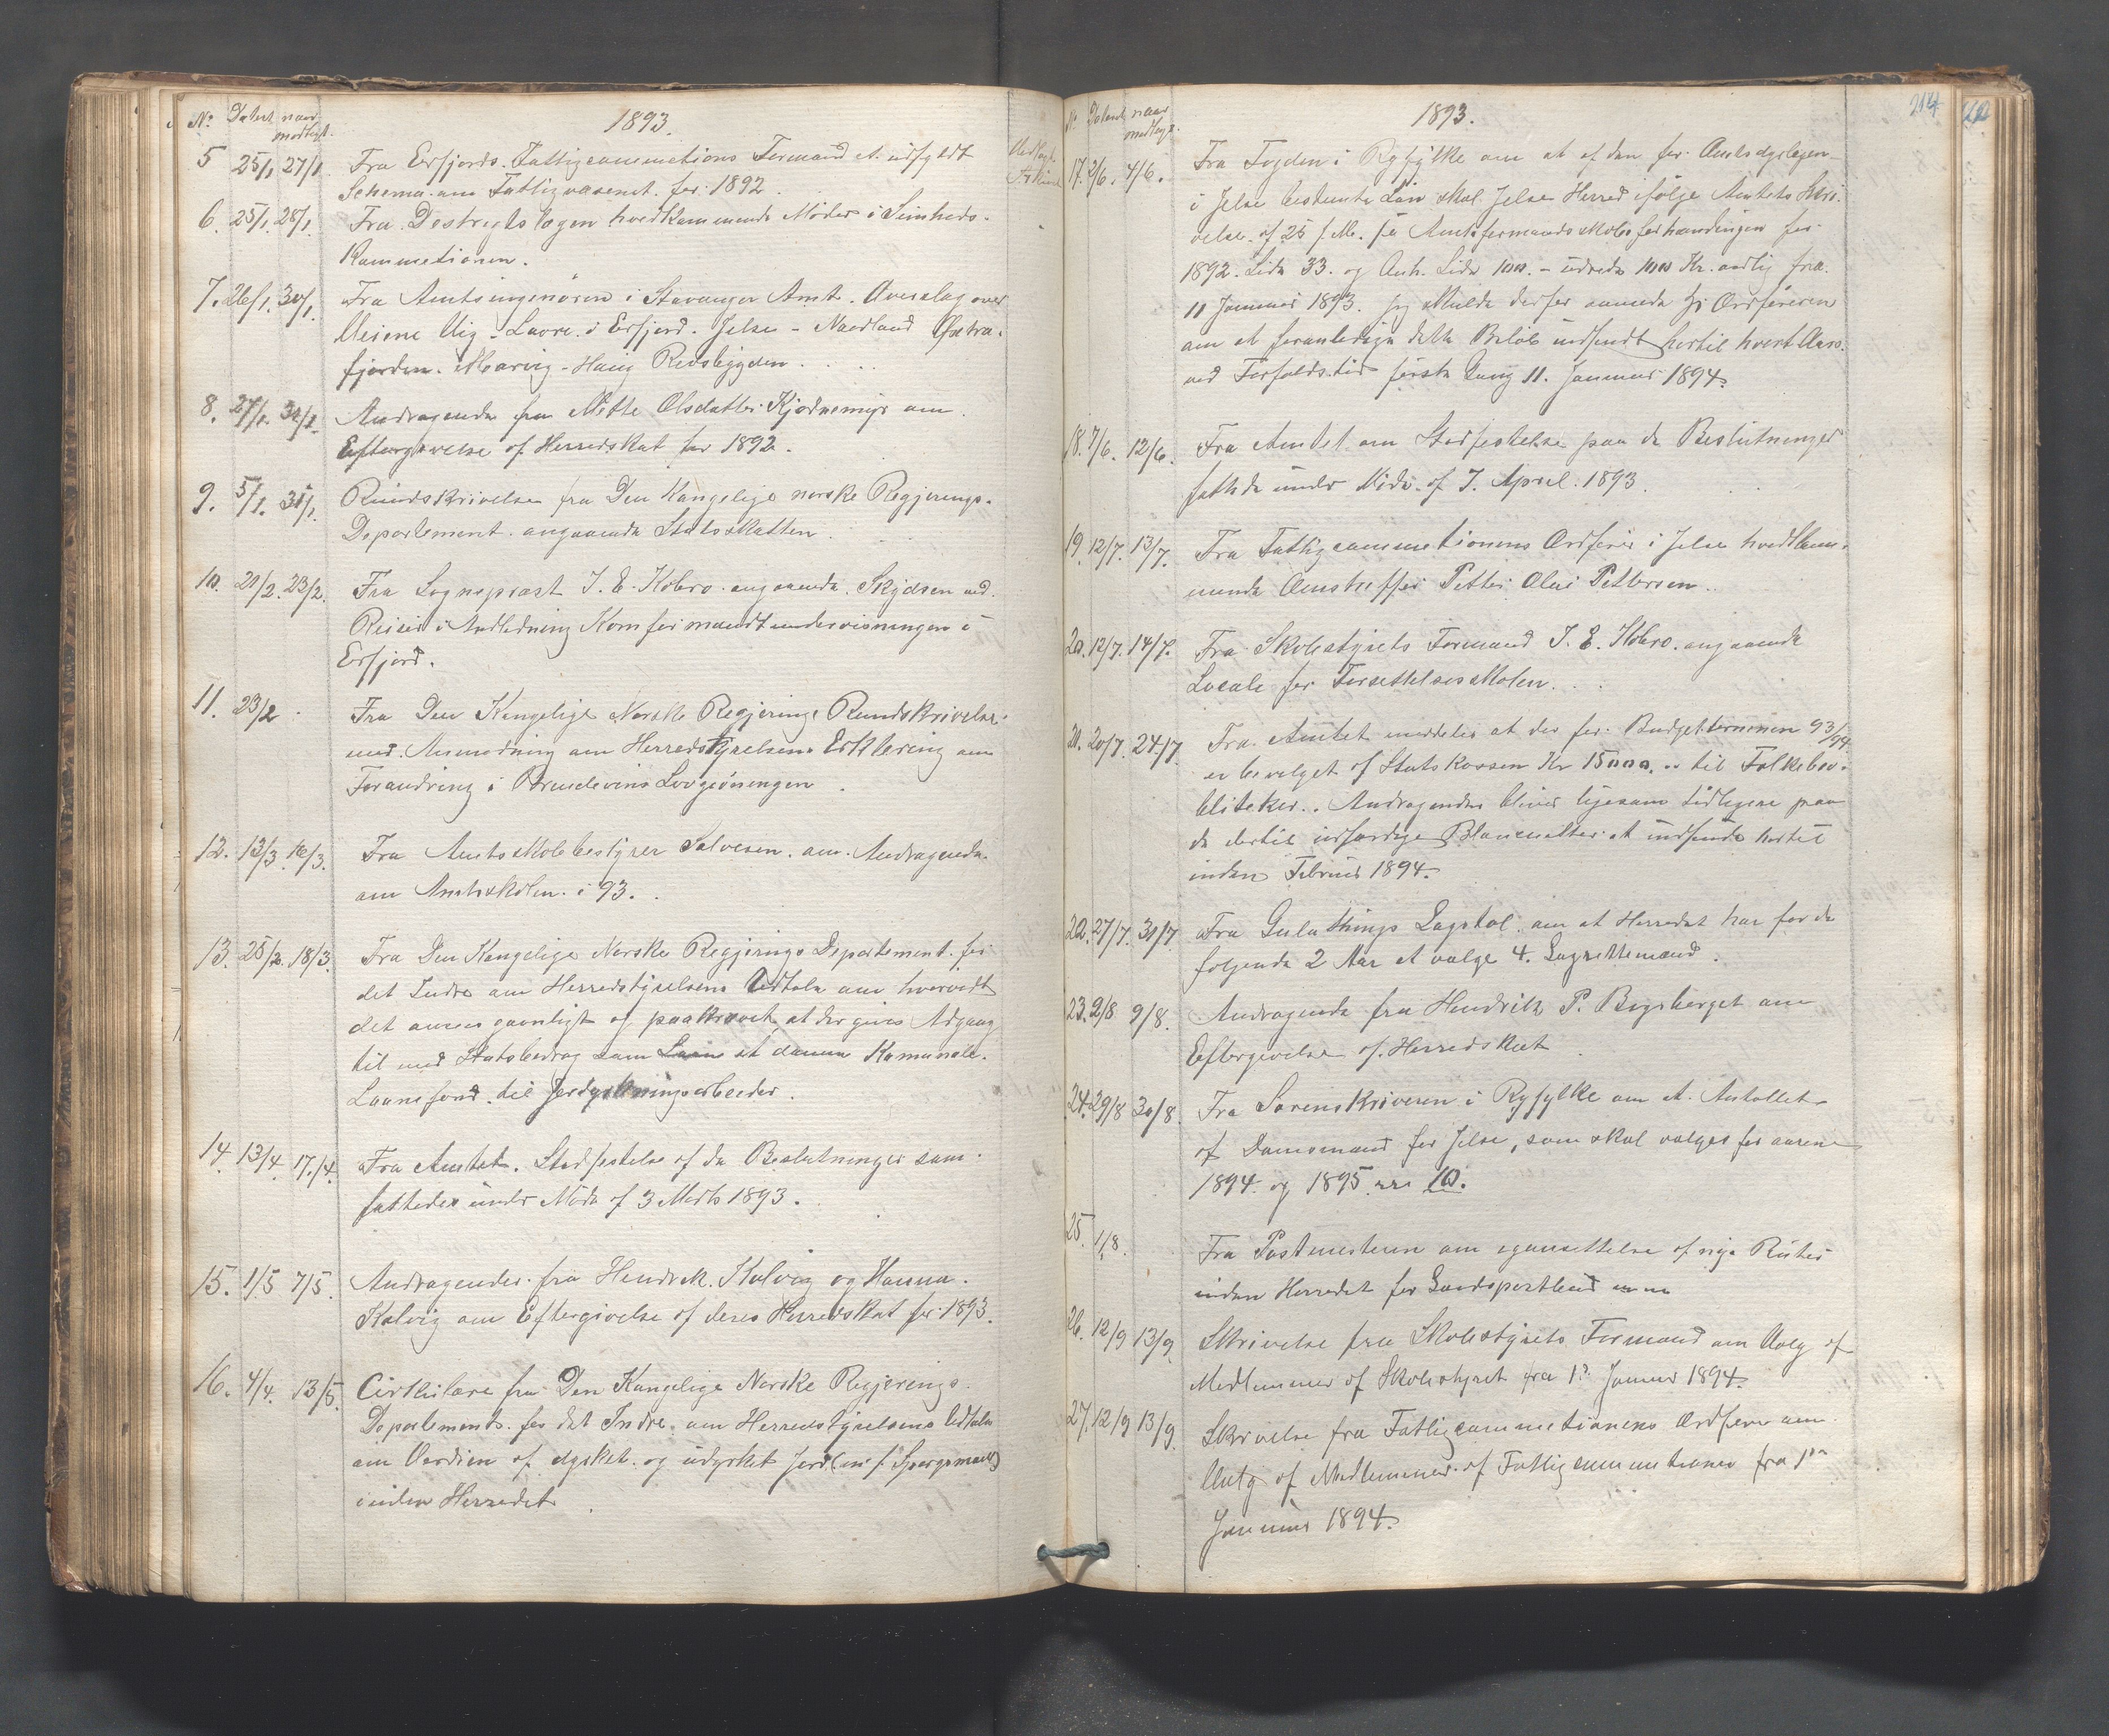 No Datert naar modtagt. 1893.
5 25/1 27/1. Fra Erfjords Fattigcommetions Formand et udfyldt
Schema om Fattigvæsenet for 1892
6. 25/1. 28/1. Fra Destrigtslægen hvedkommende Møder i Sunheds-
Kommetionen.
7. 26/1. 30/1. Fra Amtsingenøren i Stavanger Amt. Overslag over
Veiene Vig - Lavre i Erfjord. Jelse - Nordland Østra-
fjorden. Marvig - Haug Revsbygden
8. 27/1. 30/1. Andragende fra Mette Olsdatter Kjødnemyr om
Eftergivelse af Herredskat for 1892.
9. 5/1. 31/1. Rundskrivelse fra Den Kongelige norske Regjerings-
Departement angaaende Statsskatten
10. 21/2. 23/2. Fra Sognepræst J. E. Kobro angaaende Skydsen ved
Reiser i Andledning Komfermandtundervisningen i
Erfjord.
11. 23/2 Fra Den Kongelige Norske Regjerings Rundskrivelse
med Anmodning om Herredstyrelsens Erklæring om
Forandring i Brændevins Lovgivningen
12. 13/3 16/3. Fra Amtsskolebestyrer Salvesen om Andragende
om Amtsskolen i 93.
13. 25/2. 18/3. Fra Den Kongelige Norske Regjerings Departement for
det Indre om Herredstyrelsens Udtale om hvorvidt
det anses gavnligt og paakrævet at der gives Adgang
til med Statsbedrag som Laan at danne Komunale
Laanefond til Jorddyrkningsarbeider.
14. 13/4. 17./4. Fra Amtet. Stadfestelse af de Beslutninger som
fattedes under Møde af 3 Marts 1893.
15. 1/5 7/5. Andragender fra Hendrek Kalvig og Hanna
Kalvig om Eftergivelse af deres Herredskat for 1893.
16. 4/4. 13/5. Cirkulære fra Den Kongelige Norske Regjerings
Departements for det Indre om Herredstyrelsens Udtale
om Værdien af dyrket og udyrket Jord
inden Herredet
No Datert naar modtagt. 1893. 214
17. 2/6. 4/6. Fra Fogden i Ryfylke om at af den for Amtsdyrlægen
i Jelse bestemte Løn skal Jelse Herred ifølge Amtets Skri-
velse af 25 f. M. se Amtsformandsskabsforhandlinger for
1892. Side 33. og Anh. Side 100. - udrede 100 Kr. aarlig fra
11 Januar 1893. Jeg skulde derfor anmode Hr Ordføreren
om at foranledige dette Beløb indsendt hertil hvert Aar
ved Forfaldstid første Gang 11. Januar 1894.
18. 7/6. 12/6. Fra Amtet om Stadfestelse paa de Beslutninger
fattede under Møde af 7. April 1893.
19. 12/7. 13/7. Fra Fattigcommetionens Ordfører i Jelse hvedkom-
mende Petter Olai Pettersen.
20. 12/7. 14/7. Fra Skolestyrets Formand J. E. Kobro angaaende
Locale for Forsettelsesskolen.
21. 20/7. 24/7 Fra Amtet meddeles at der for Budgetterminen 93/94.
er bevelget af Statskassen Kr 15000. .. til Folkebib-
bliteker. Andragender bliver ligesom tidligere paa
de dertil Blanketter at indsende hertil
inden Februar 1894.
22. 27/7. 31/7 Fra Gulathings Lagstol om at Herredet har for de
følgende 2 Aar at vælge 4. Lagrettemænd.
23. 2/8 9/8. Andragende fra Hendrik P. Bergsberget om
Eftergivelse af Herredskat
24. 29/8 30/8. Fra Sorenskriveren i Ryfylke om At Antallet
af Domsmænd for Jelse, som skal vælges for aarene
1894. og 1895 er 10.
25. 1/8. Fra Postmesteren om igansettelse af nye Ruter
inden Herredet for Landspostbud m m
26. 12/9 13/9. Skrivelse fra Skolestyrets Formand om Valg af
Medlemmer af Skolestyret fra 1ste Januar 1894.
27. 12/9 13/9. Skrivelse fra Fattigcommetionens Ordfører om
Valg af Medlemmer af Fattigcommetionen fra 1ste
Januar 1894.